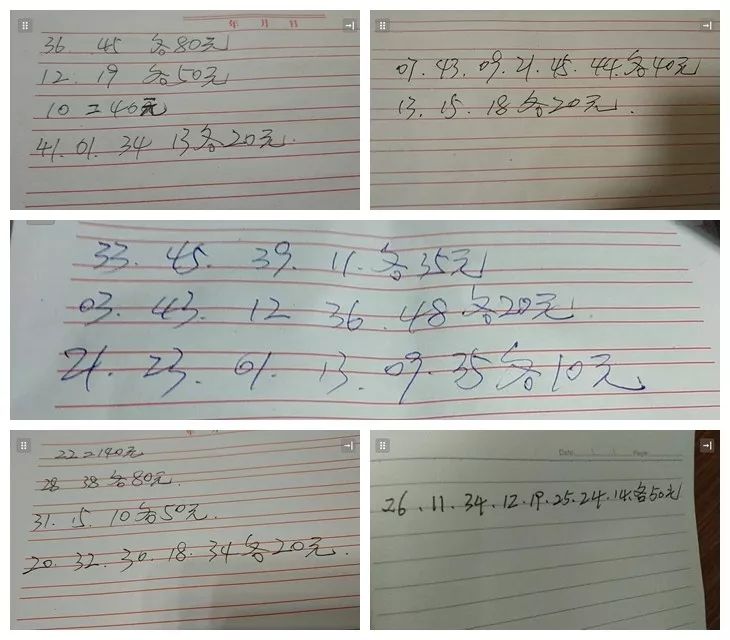 年 月 日
36 45 各80元
12. 19 各50元
10 = 40元
41. 01. 34 13各20元.
07. 43. 09. 21. 45. 44. 各40元
13. 15. 18各20元.
33. 45. 39. 11. 各35元
03. 43. 12 36. 48 各20元.
21. 23. 01. 13. 09. 35各10元
22=140元
28 38 各80元.
31. 15. 10各50元.
20. 32. 30. 18. 34各20元.
Date \ \ Page
26. 11. 34. 12. 19. 25. 24. 14. 各50元